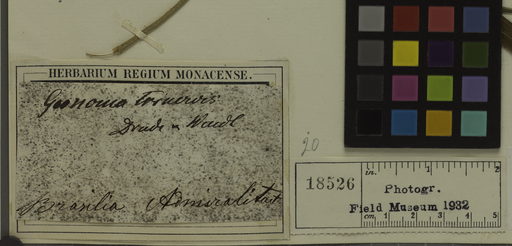 HERBARIUM REGIUM MONACENSE.
Geonoma
Drude & Wendl
Brasilia Admiralitaet
20
18526
in. 1 2
Photogr.
Field Museum 1932
cm. 1 2 3 4 5